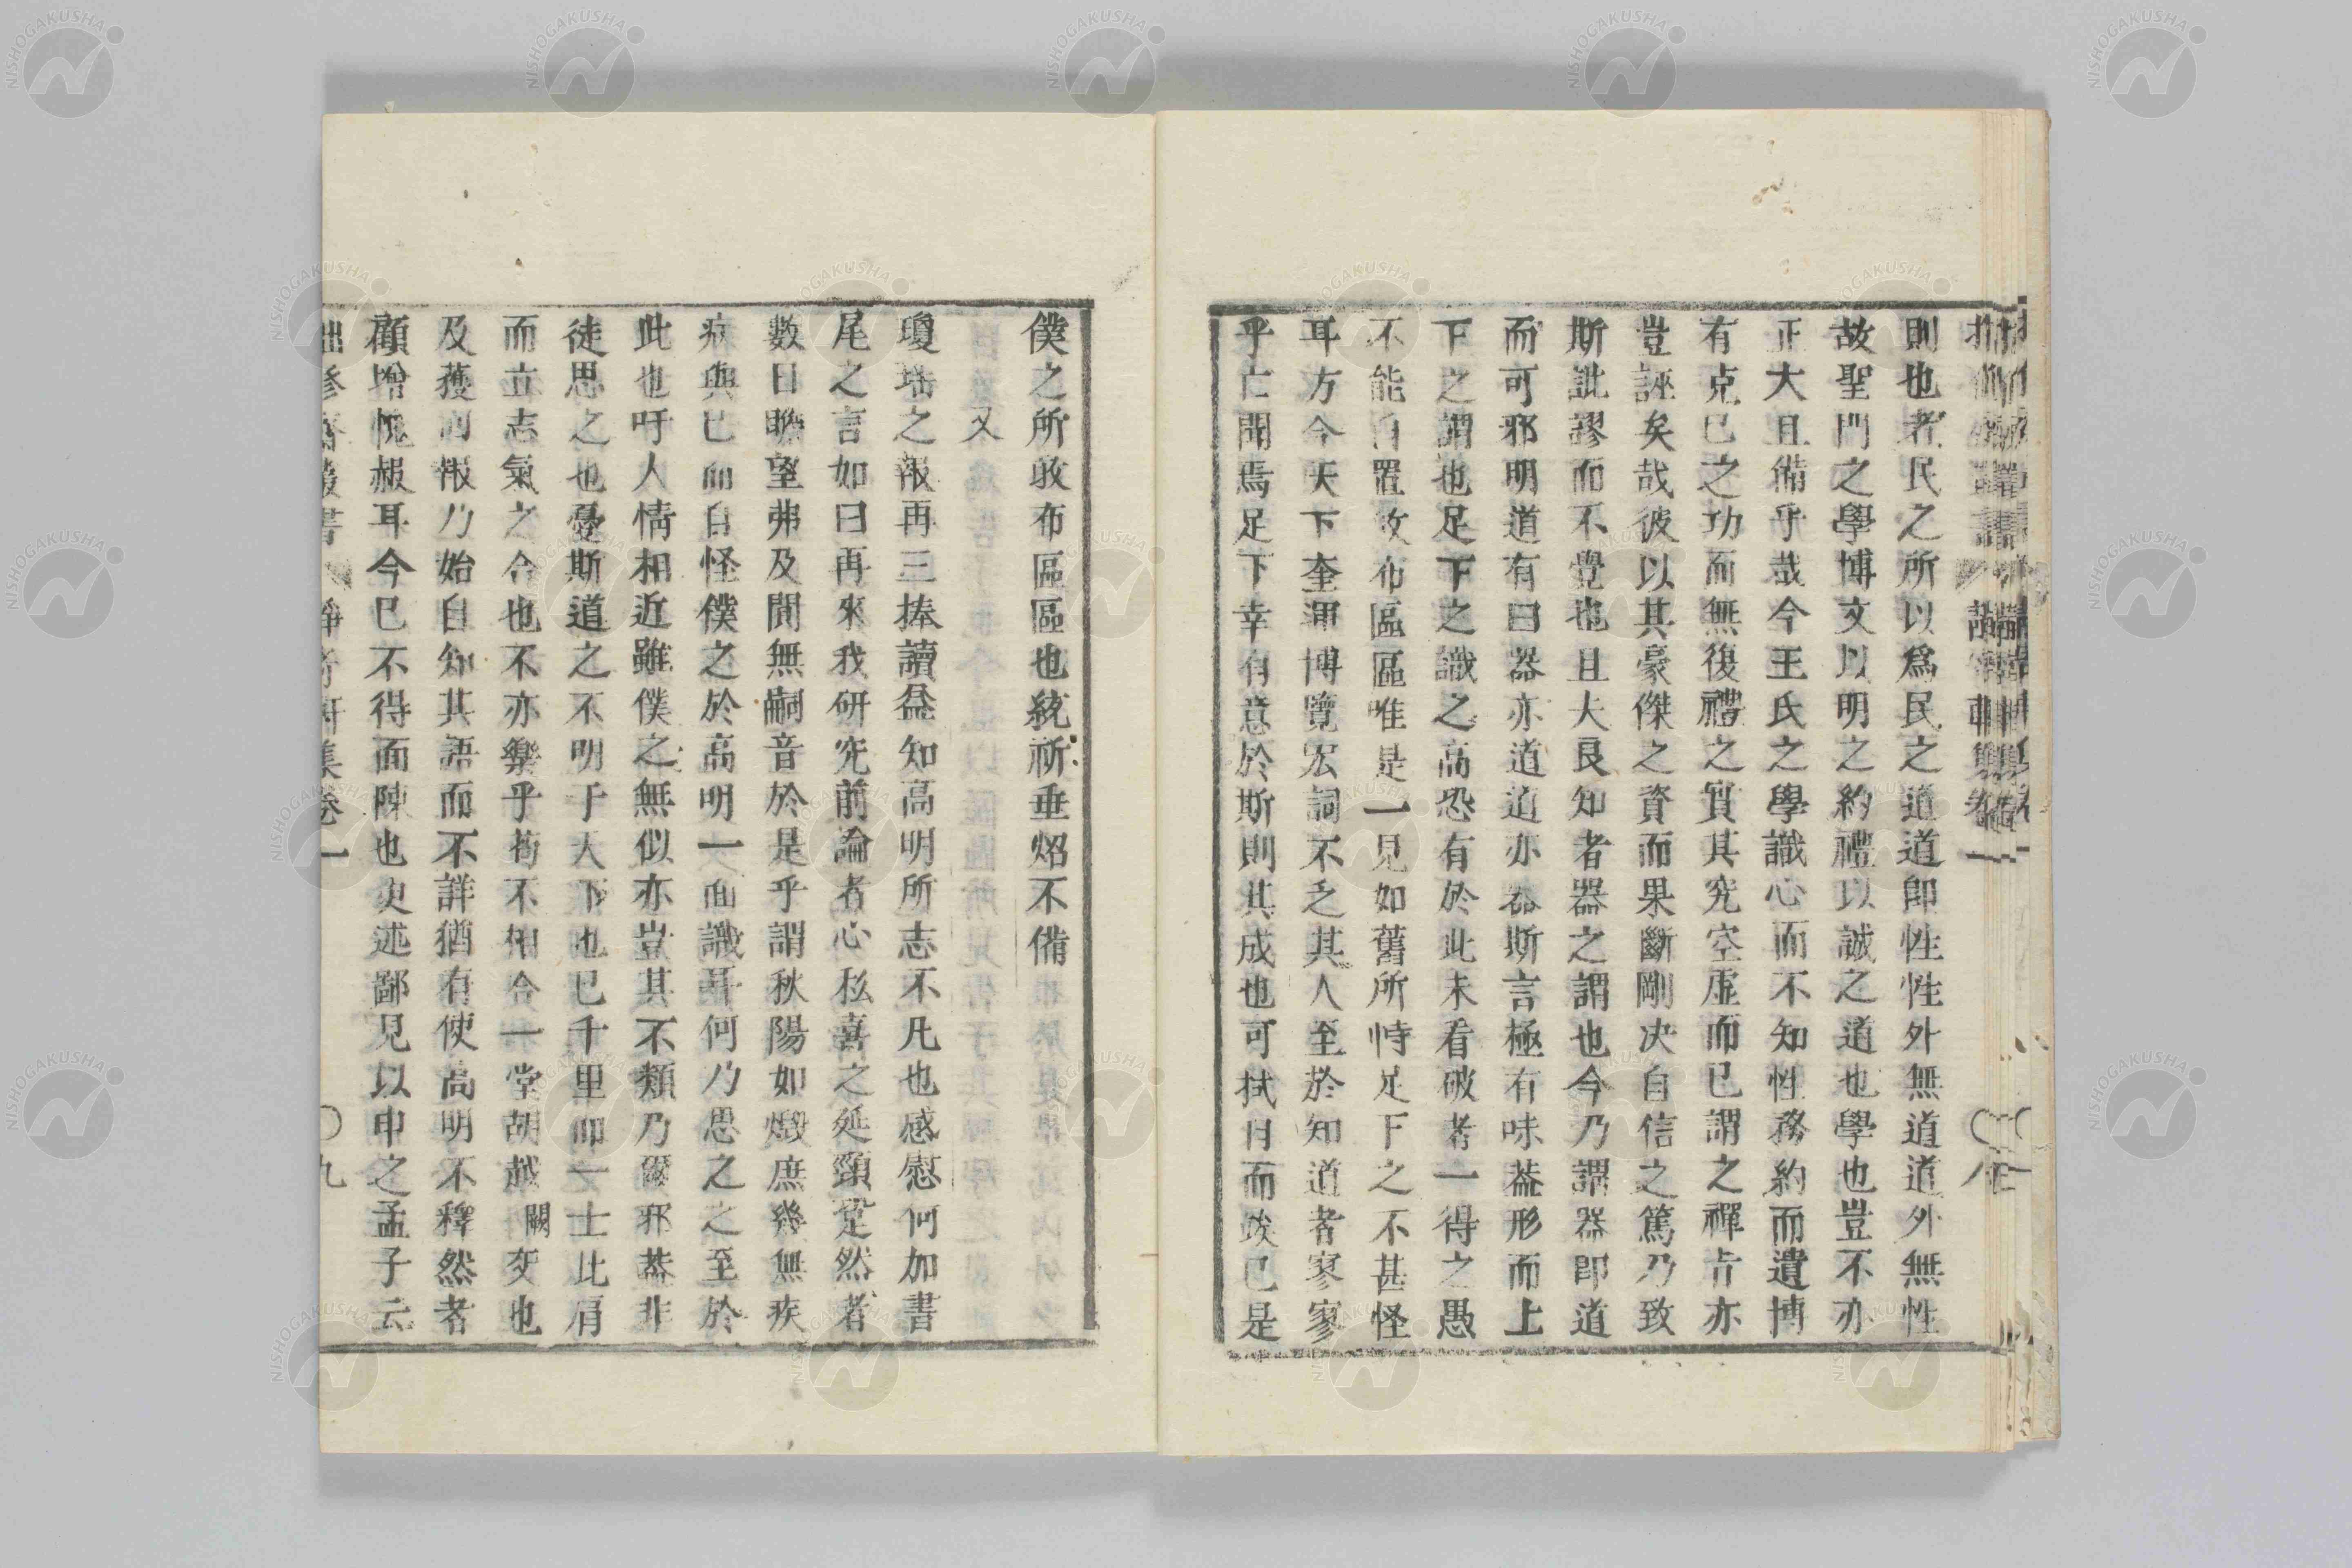 則也者民之所以爲民之道道卽性性外無道道外無性
故聖門之學博文以明之約禮以誠之道也學也豈不亦
正大且備乎哉今王氏之學識心而不知性務約而遺博
有克己之功而無復禮之實其究空虛而已謂之禪古亦
豈誣矣哉彼以其豪傑之資而果斷剛决自信之篤乃致
斯訛謬而不覺也且夫良知者器之謂也今乃謂器卽道
而可邪明道有曰器亦道道亦器斯言極有味葢形而上
下之謂也足下之識之高恐有於此未看破者一得之愚
不能自置敢布區區唯是一見如舊所恃足下之不甚怪
耳方今天下奎運博覽宏詞不乏其人至於知道者寥寥
乎亡聞焉足下幸有意於斯則其成也可拭目而竢已是
僕之所敢布區區也統祈垂炤不備
又
瓊瑤之報再三捧讀益知高明所志不凡也感慰何加書
尾之言如曰再來我研究前論者心私喜之延頸企然者
數日瞻望弗及閴無嗣音於是乎謂秋陽如燬庶幾無疾
病與已而自怪僕之於高明一面識耳何乃思之之至於
此也吁人情相近雖僕之無似亦豈其不類乃爾邪葢非
徒思之也憂斯道之不明于天下也已千里而一士比肩
而立志氣之合也不亦樂乎苟不相合一堂胡越闕矣也
及獲前報乃始自知其語而不詳猶有使高明不釋然者
顧增愧赧耳今已不得面陳也更述鄙見以申之孟子云
甘雨亭叢書 靜寄軒集卷一 〇九